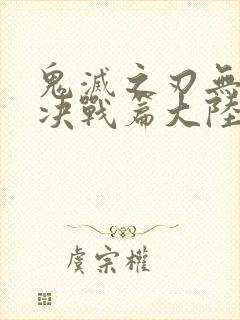 鬼滅之刃無
决戰篇大陸
虞宗權